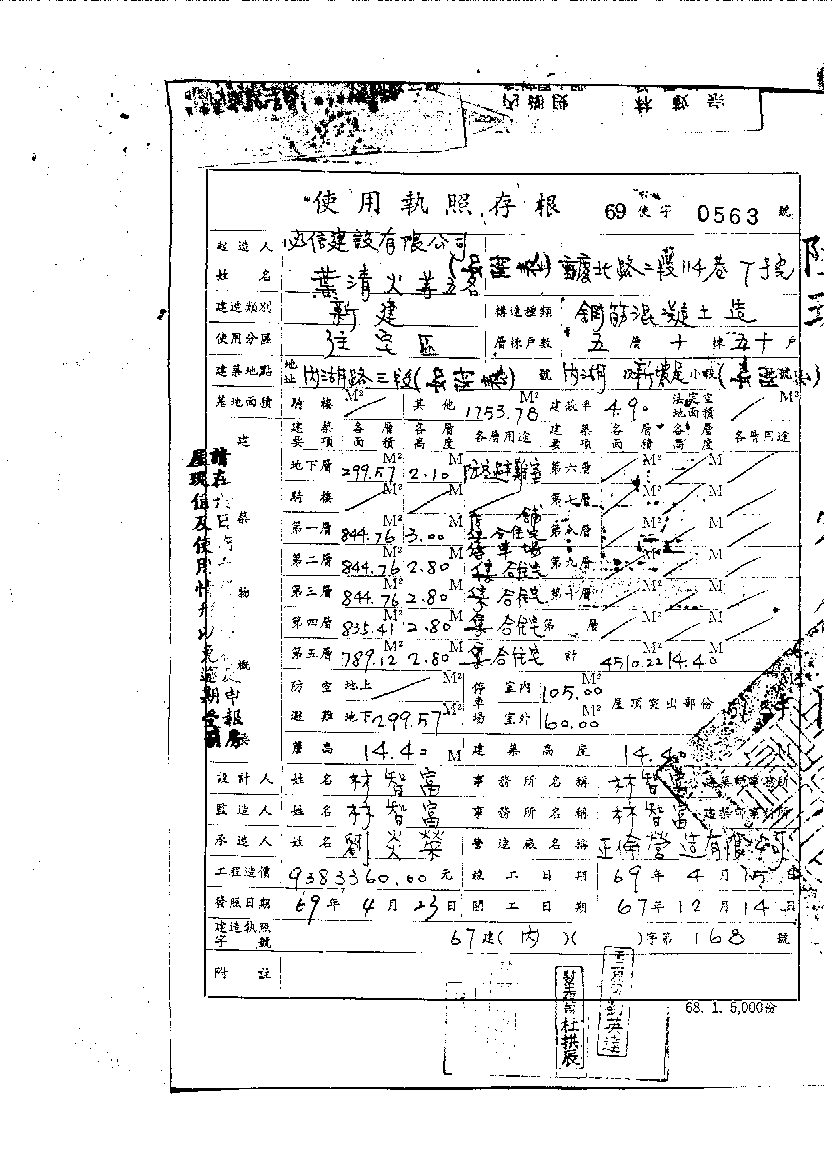 使用執照存根 69 使字 0563 號
起造人 信建設有限公司
姓名 葉清火等 名 重慶北路二段114巷 號
建造類別 新建 構造種類 鋼筋混凝土造
使用分區 住宅區 層棟戶數 五層十棟五十戶
建築地點 地址 內湖路三段 號 內湖 小段
基地面積 騎樓 M² 其他 1753.78 M² 建蔽率 4.90 法定空地面積 M²
建築物概要 建築要項 各層面積 各層高度 各層用途 建築要項 各層面積 各層高度 各層用途
地下層 299.57 M² 2.10 M 防空避難室 第六層 M² M
騎樓 M² M 第七層 M² M
第一層 844.76 M² 3.00 M 店舖 集合住宅 停車場 第八層 M² M
第二層 844.76 M² 2.80 M 集合住宅 第九層 M² M
第三層 844.76 M² 2.80 M 集合住宅 第十層 M² M
第四層 835.41 M² 2.80 M 集合住宅 第 層 M² M
第五層 789.12 M² 2.80 M 集合住宅 計 4510.22 M² 14.40 M
防空避難 地上 M² 停車場 室內 105.00 屋頂突出部份
地下 299.57 M² 室外 160.00
簷高 14.40 M 建築高度 14.40 M
設計人 姓名 林智富 事務所名稱 林智富建築師事務所
監造人 姓名 林智富 事務所名稱 林智富建築師事務所
承造人 姓名 劉炎榮 營造廠名稱 正倫營造有限公司
工程造價 9383360.00 元 竣工日期 69年4月15日
發照日期 69年4月23日 開工日期 67年12月14日
建造執照字號 67建(內)( )字第 168 號
附註
68. 1. 5,000份
杜拱辰